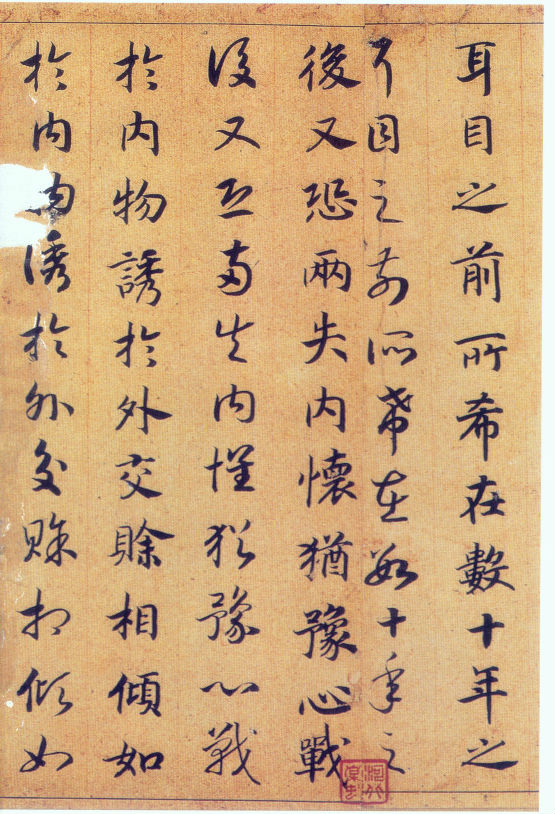 耳目之前所希在數十年之
耳目之前所希在數十年之
後又恐兩失内懷猶豫心戰
後又恐兩失内懷猶豫心戰
於内物誘於外交賒相傾如
於内誘於外交賒相傾如